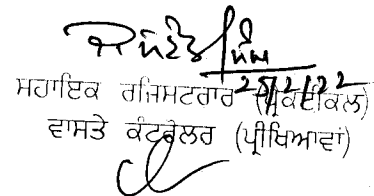 25/2/22
ਸਹਾਇਕ ਰਜਿਸਟਰਾਰ (ਪ੍ਰੈਕਟੀਕਲ)
ਵਾਸਤੇ ਕੰਟਰੋਲਰ (ਪ੍ਰੀਖਿਆਵਾਂ)